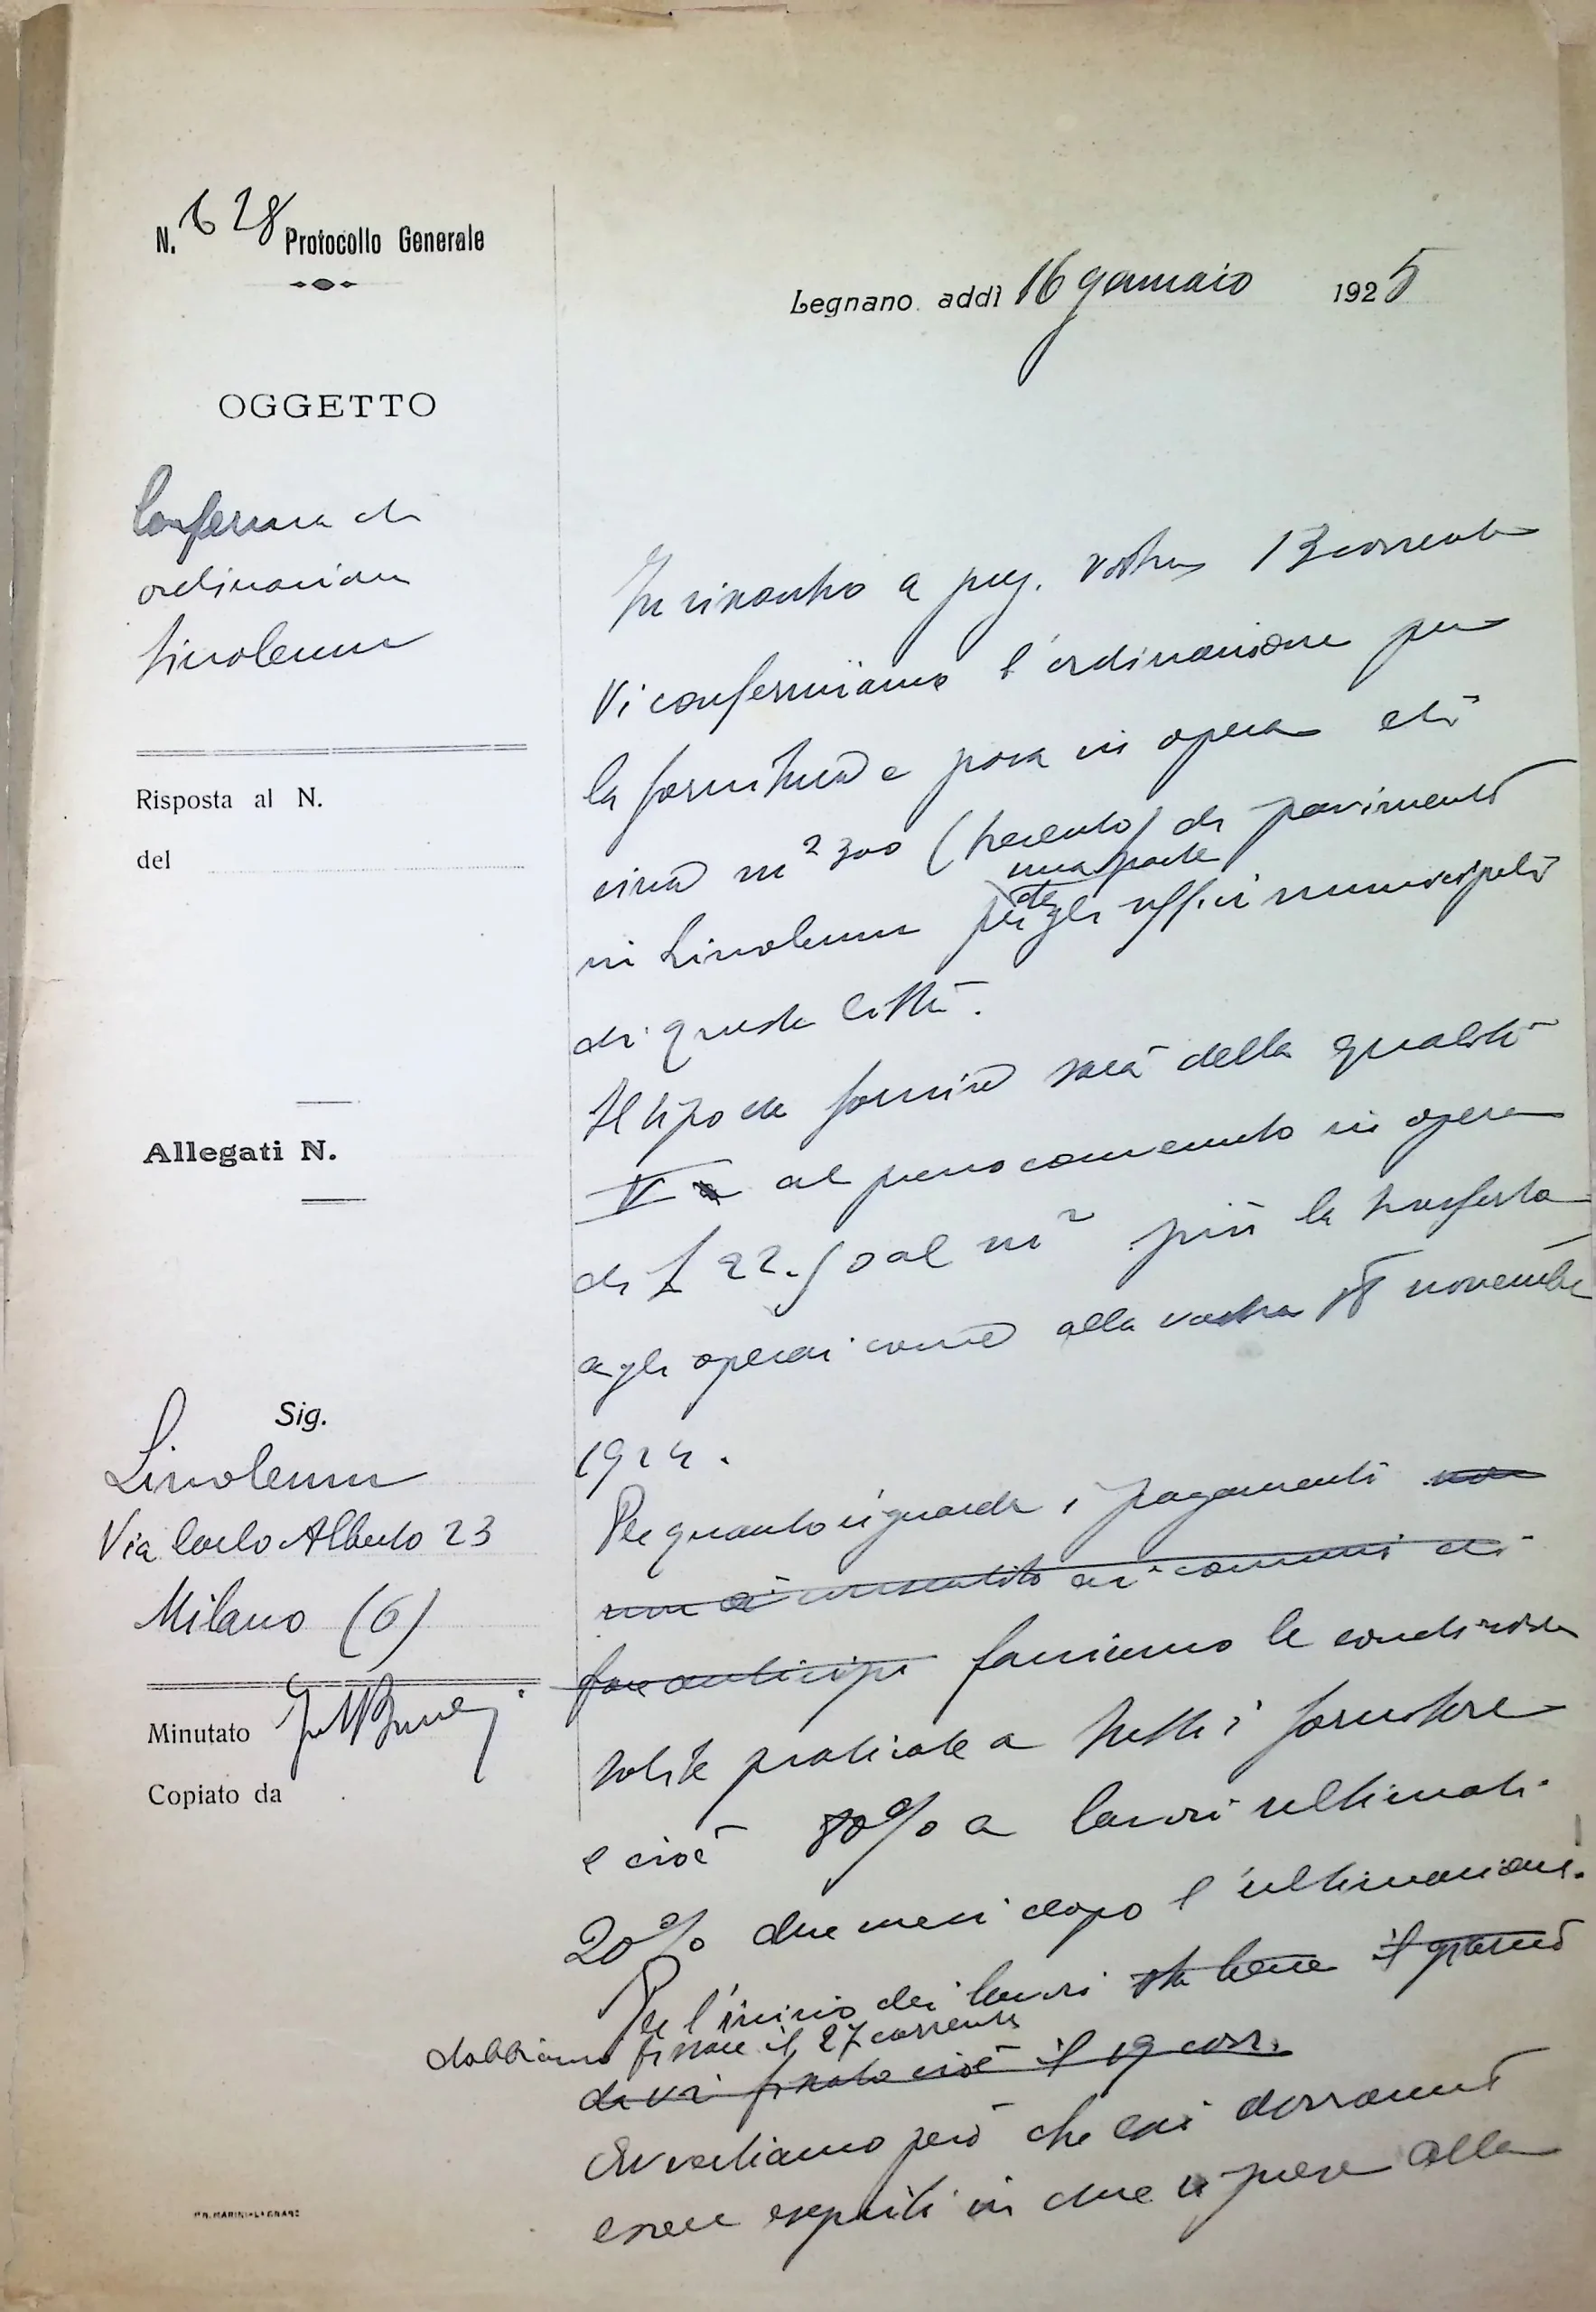 N. 628 Protocollo Generale
Legnano addì 16 gennaio 1925
OGGETTO
Conferma di
ordinazione
Linoleum
Risposta al N.
del
Allegati N.
Sig.
Linoleum
Via Carlo Alberto 23
Milano (6)
Minutato
Copiato da
PR. MARINI-LEGNANO
In riscontro a preg. vostra 13 corrente
Vi confermiamo l'ordinazione per
la fornitura e posa in opera di
circa m2 300 (trecento) di pavimento
una parte
de
in Linoleum per gli uffici municipali
di questa Città.
Il tipo da fornire sarà della qualità
V al prezzo convenuto in opera
di £ 22.50 al m2 più la trasferta
agli operai come alla vostra novembre
1924.
Per quanto riguarda i pagamenti non
non è consentito ai comuni di
fare anticipi facciamo le condizioni
solite praticate a tutti i fornitori
e cioè 80% a lavori ultimati
20% due mesi dopo l'ultimazione.
Per l'inizio dei lavori sta bene il giorno
dobbiamo fissare il 27 corrente
da voi fissato cioè il 19 corr.
Avvertiamo però che essi dovranno
essere eseguiti in due riprese alla